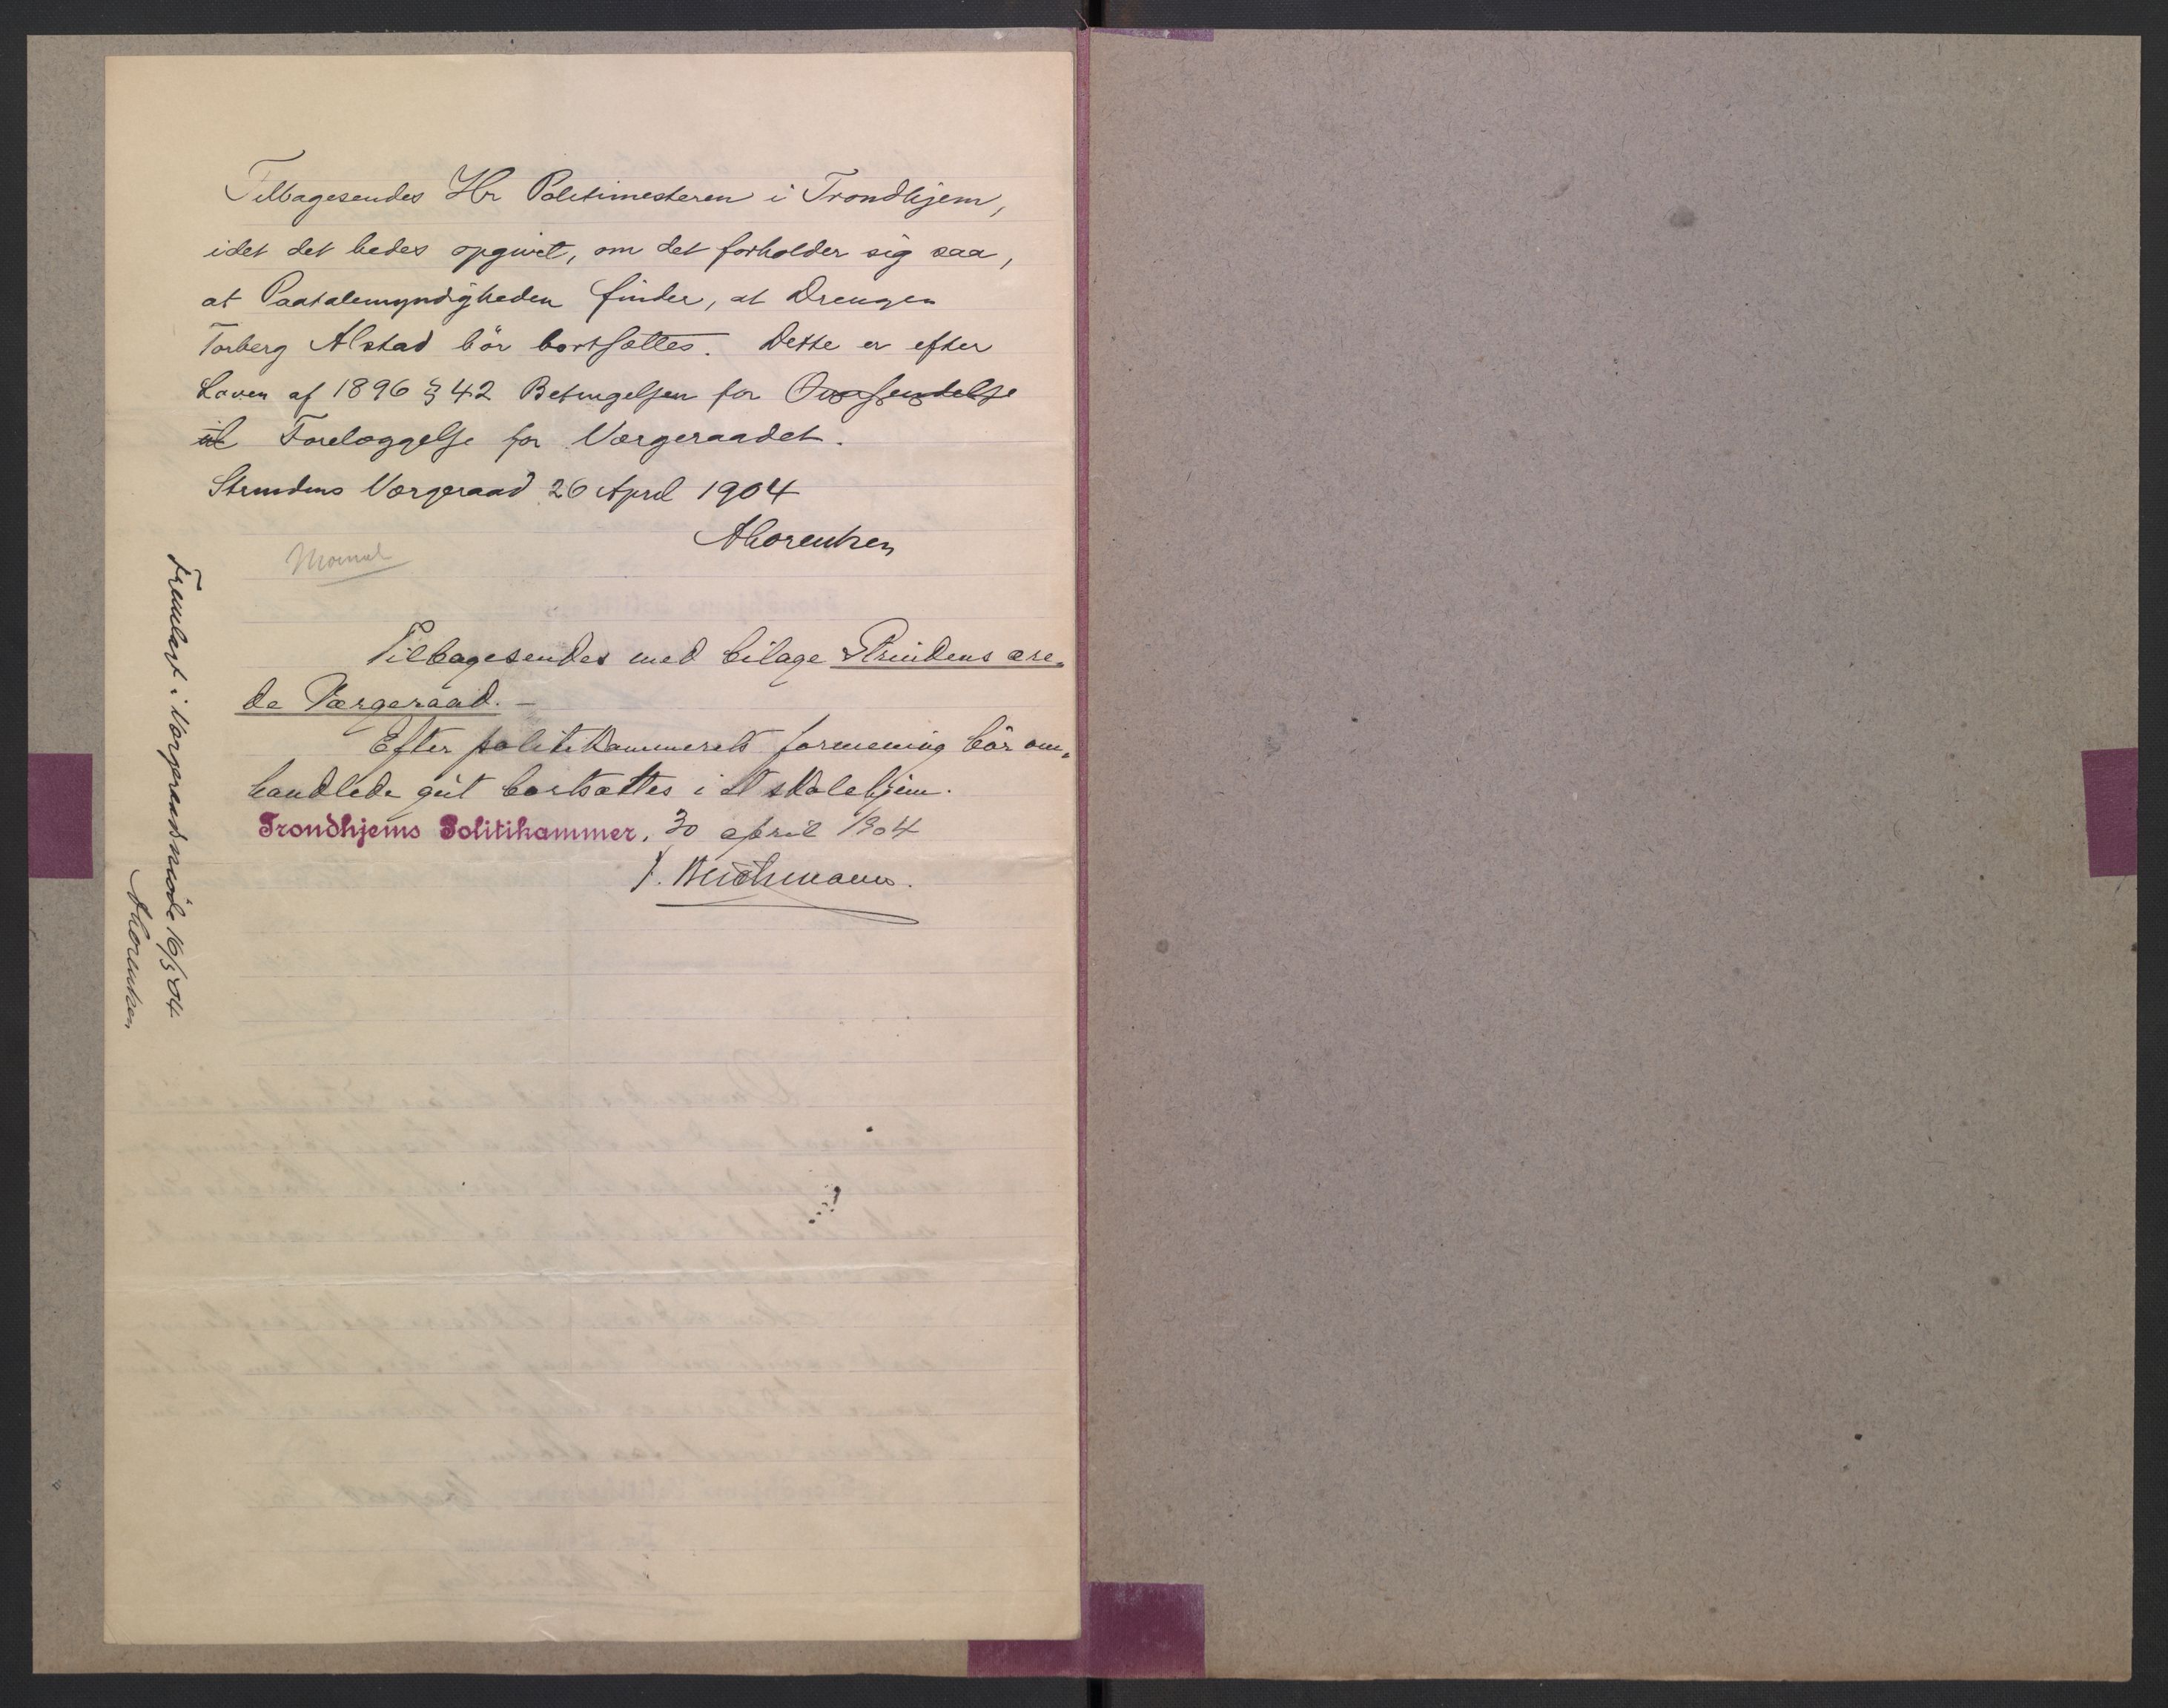 Tilbagesendes Hr Politimesteren i Trondhjem,
idet det bedes opgivet, om det forholder sig saa,
at Paatalemyndigheden finder, at Drengen
Torberg Alstad bör bortsættes. Dette er efter
Loven af 1896 § 42 Betingelsen for Oversendelse
til Forelæggelse for Værgeraadet.
Strindens Værgeraad 26 April 1904
ALorentzen
Tilbagesendes med bilage Strindens ære-
de Værgeraad. –
Efter politikammerets formening bör om-
handlede gut bortsættes i et skolehjem.
Trondhjems Politikammer, 30 april 1904
Fremlagt i Værgeraadsmöde 16/5 04
ALorentzen